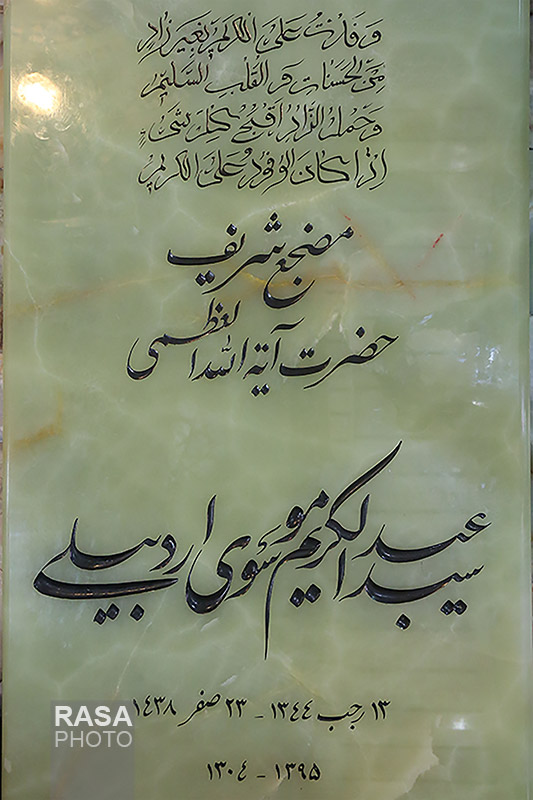 وَفَدْتُ عَلَی الْکَرِیمِ بِغَیْرِ زادٍ
مِنَ الْحَسَناتِ وَ الْقَلْبِ السَّلِیمِ
وَ حَمْلُ الزّادِ اَقْبَحُ کُلِّ شَیْءٍ
اِذا کانَ الْوُفُودُ عَلَی الْکَرِیمِ
مضجع شریف
حضرت آیة الله العظمی
سید عبدالکریم موسوی اردبیلی
۱۳ رجب ۱۳۴۴ - ۲۳ صفر ۱۴۳۸
۱۳۰۴ - ۱۳۹۵
RASA
PHOTO